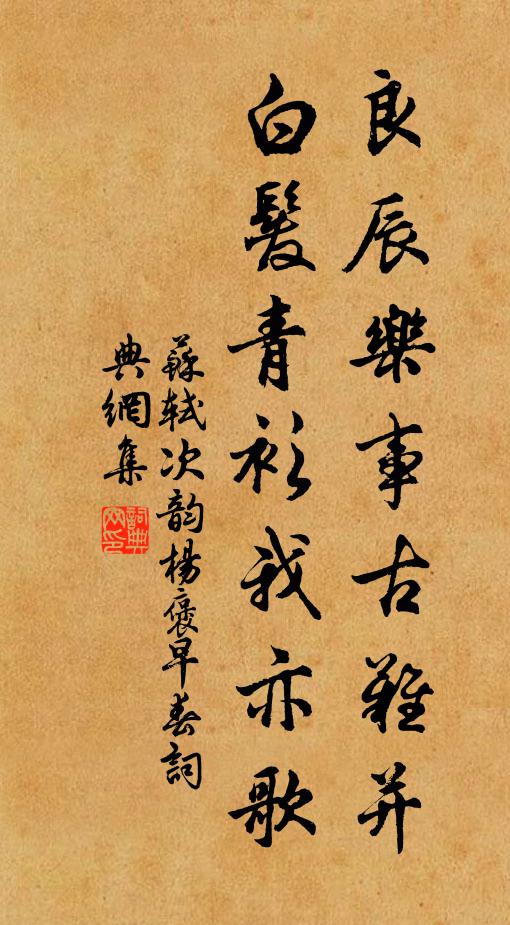 良辰樂事古難并
白髮青衫我亦歌
蘇軾次韵楊褒早春詞
典網集
詞典網印